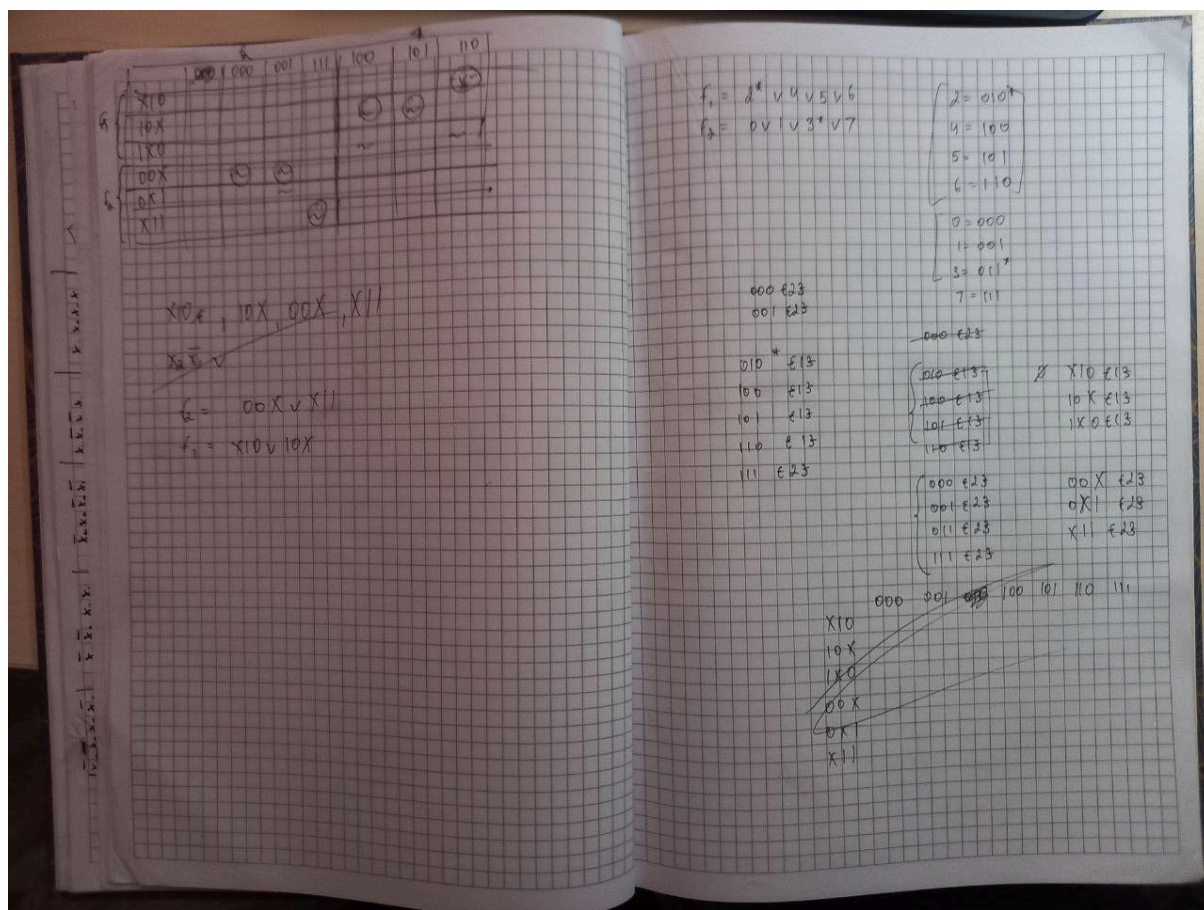 000 001 111 100 101 110
f₁ X10
10X
1X0
f₂ 00X
0X1
X11
X10, 10X, 00X, X11
x₂x̄₁ ∨
f₂ = 00X ∨ X11
f₁ = X10 ∨ 10X
f₁ = 2* ∨ 4 ∨ 5 ∨ 6
f₂ = 0 ∨ 1 ∨ 3* ∨ 7
2 = 010*
4 = 100
5 = 101
6 = 110
0 = 000
1 = 001
3 = 011*
7 = 111
000 {2}
001 {2}
010* {1}
100 {1}
101 {1}
110 {1}
111 {2}
000 {2}
010 {1}
100 {1}
101 {1}
110 {1}
X10 {1}
10X {1}
1X0 {1}
000 {2}
001 {2}
011 {2}
111 {2}
00X {2}
0X1 {2}
X11 {2}
000 001 100 101 110 111
X10
10X
1X0
00X
0X1
X11